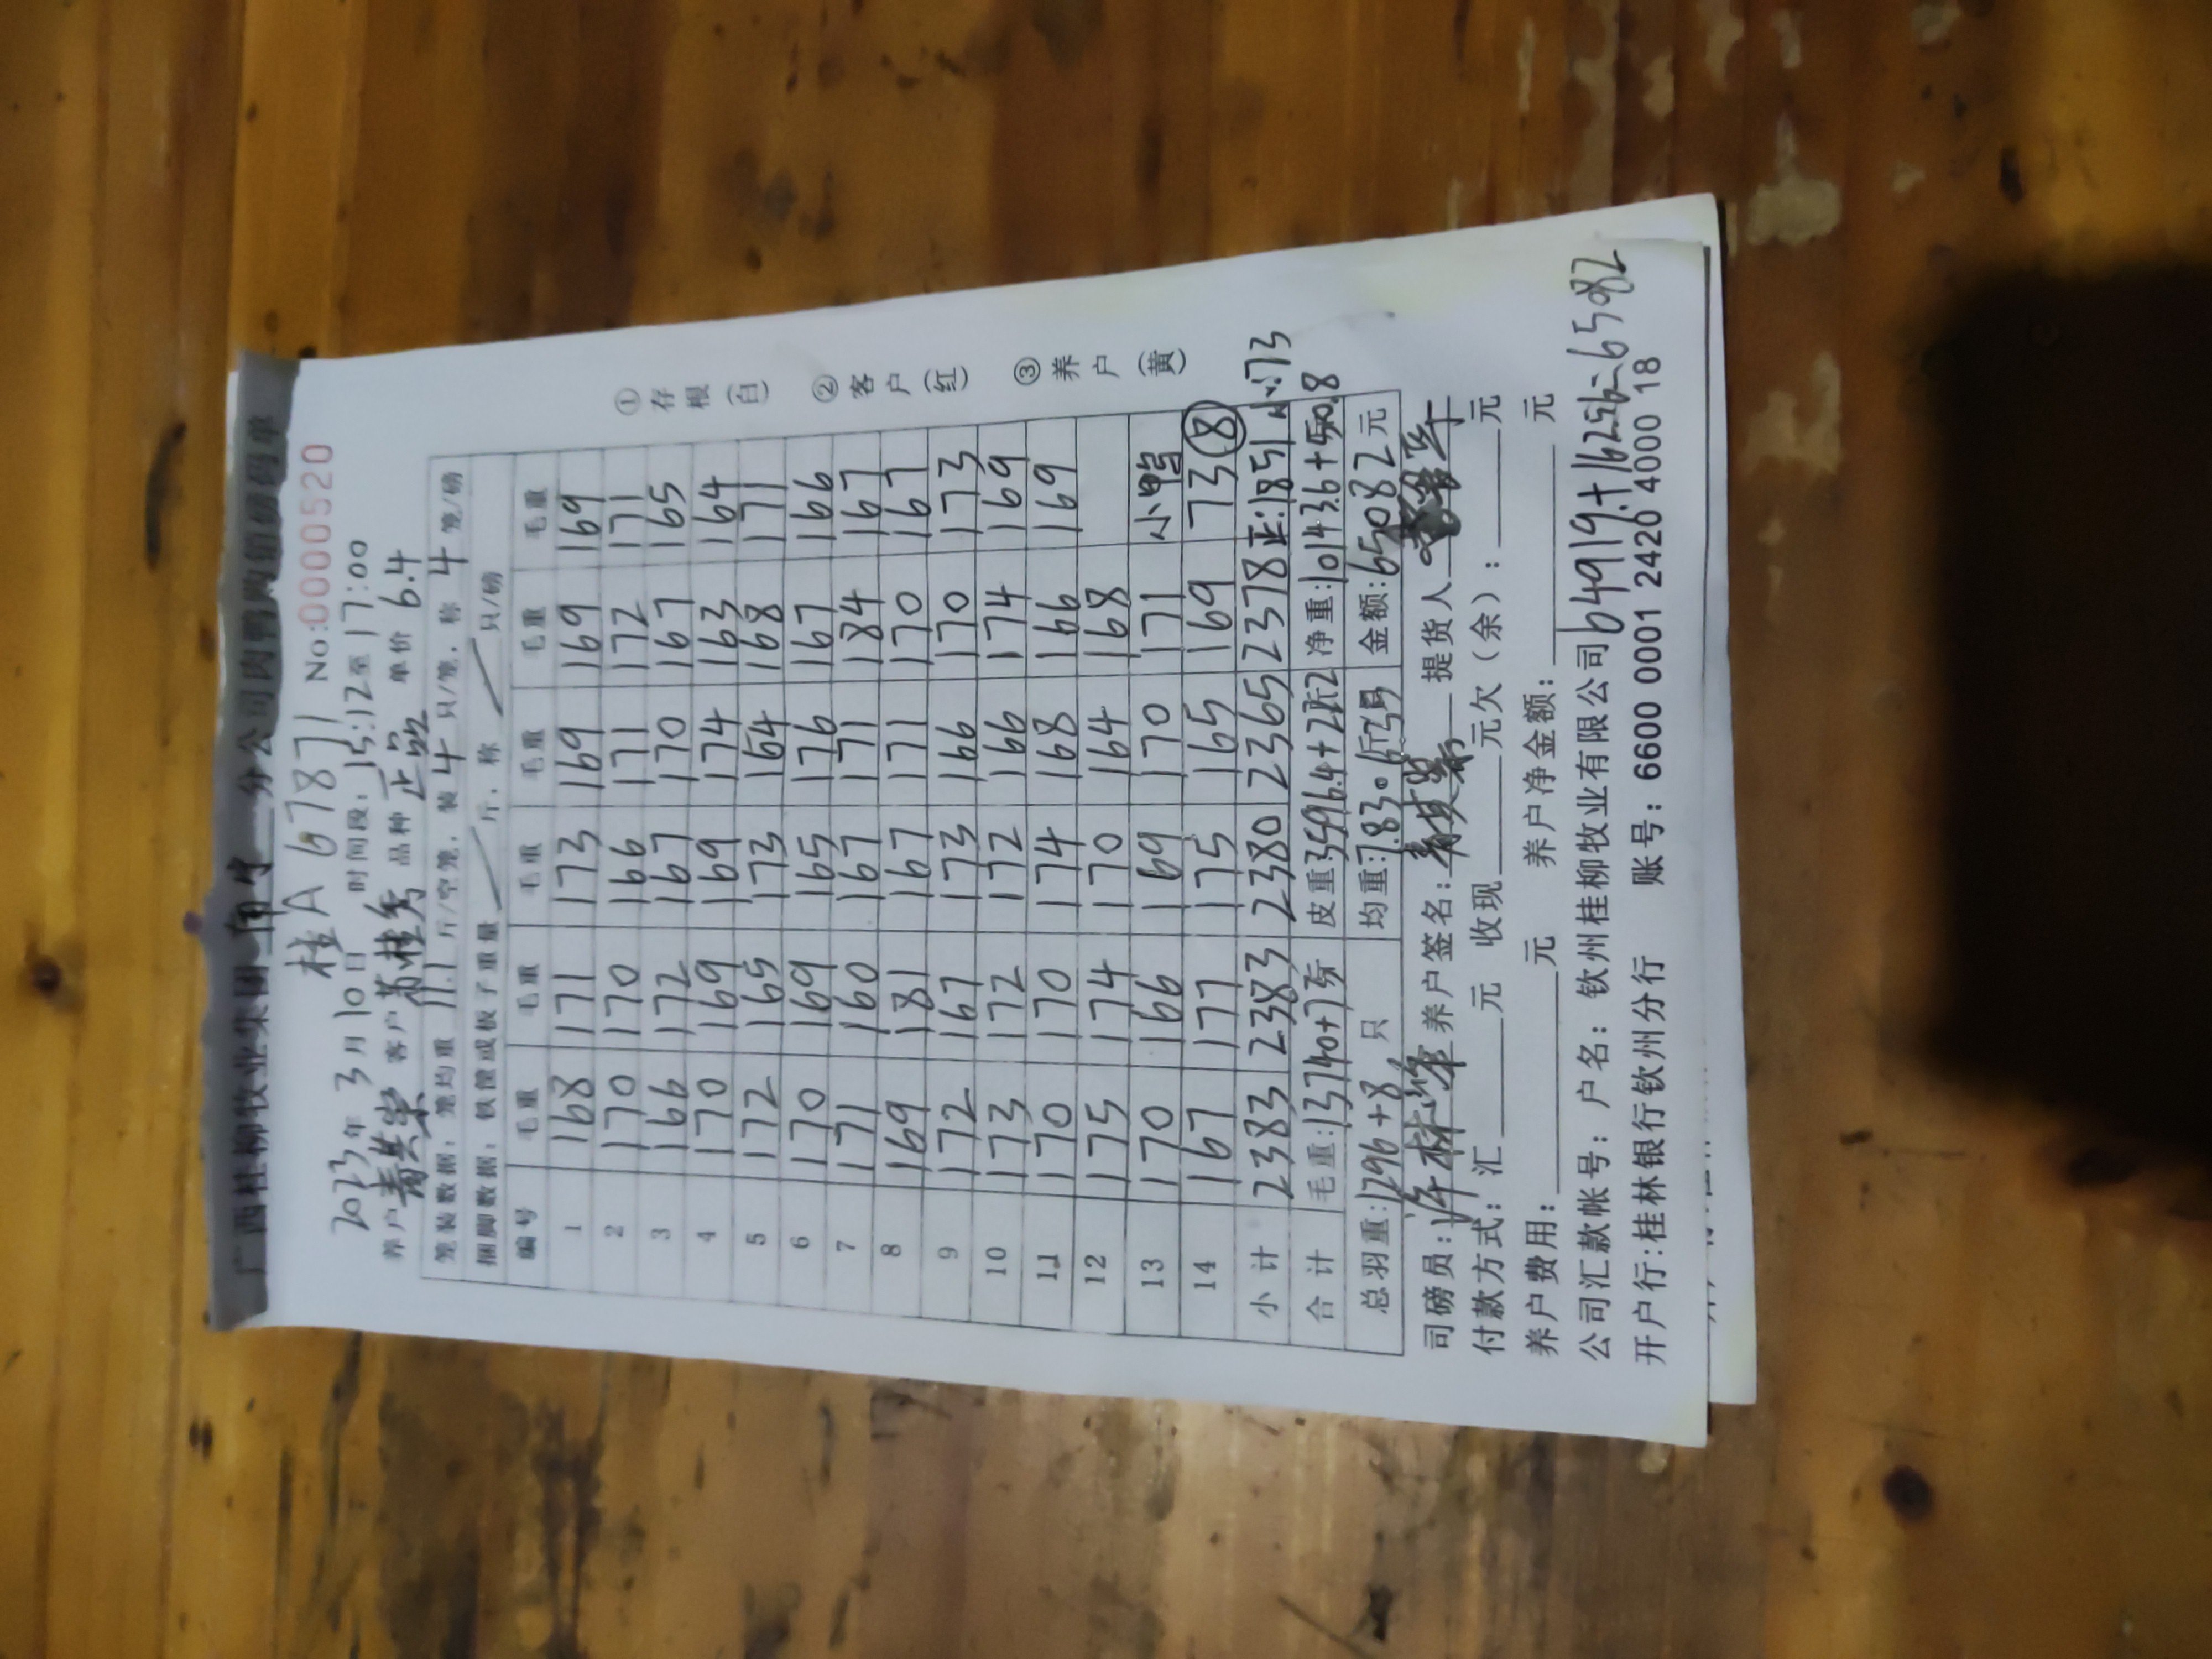 广西桂柳牧业集团南宁分公司肉鸭购销磅码单
桂A 67871 No:0000520
2023年3月10日 时间段:15:12至17:00
养户 客户 苏桂秀 品种 正品 单价 6.4
笼装数据:笼均重 11.1 斤/空笼,装 4 只/笼,称 4 笼/磅
捆脚数据:铁筐或板子重量 斤,称 只/磅
编号 毛重 毛重 毛重 毛重 毛重 毛重
1 168 171 173 169 169 169
2 170 170 166 171 172 171
3 166 172 167 170 167 165
4 170 169 169 174 163 164
5 172 165 173 164 168 171
6 170 169 165 176 167 166
7 171 160 167 171 184 167
8 169 181 167 171 170 167
9 172 167 173 166 170 173
10 173 172 172 166 174 169
11 170 170 174 168 166 169
12 175 174 170 164 168
13 170 166 169 170 171 小鸭
14 167 177 175 165 169 73 ⑧
小计 2383 2383 2380 2365 2378 正:1851 小:73
合计 毛重:13740+73 皮重:3596.4+22.2 净重:10143.6+50.8
总羽重:1296+8 只 均重:7.83 金额:65082元
司磅员: 养户签名: 提货人
付款方式:汇 元 收现 元欠(余): 元
养户费用: 元 养户净金额: 元
公司汇款帐号:户名:钦州桂柳牧业有限公司 64919+162.56=65082
开户行:桂林银行钦州分行 账号:6600 0001 2420 4000 18
①存根(白)
②客户(红)
③养户(黄)